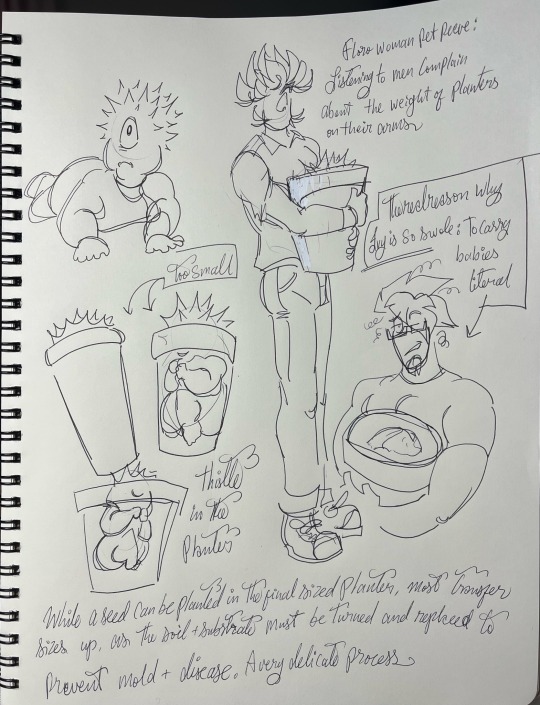 Floro woman Pet Peeve:
Listening to men complain
about the weight of Planters
on their arms
The real reason why
Guy is so swole: To carry
babies
literal
Too small
thalle
in the
Planter
While a seed can be planted in the final sized Planter, most transfer
sizes up, as the soil + substrate must be turned and replaced to
Prevent mold + disease. A very delicate process